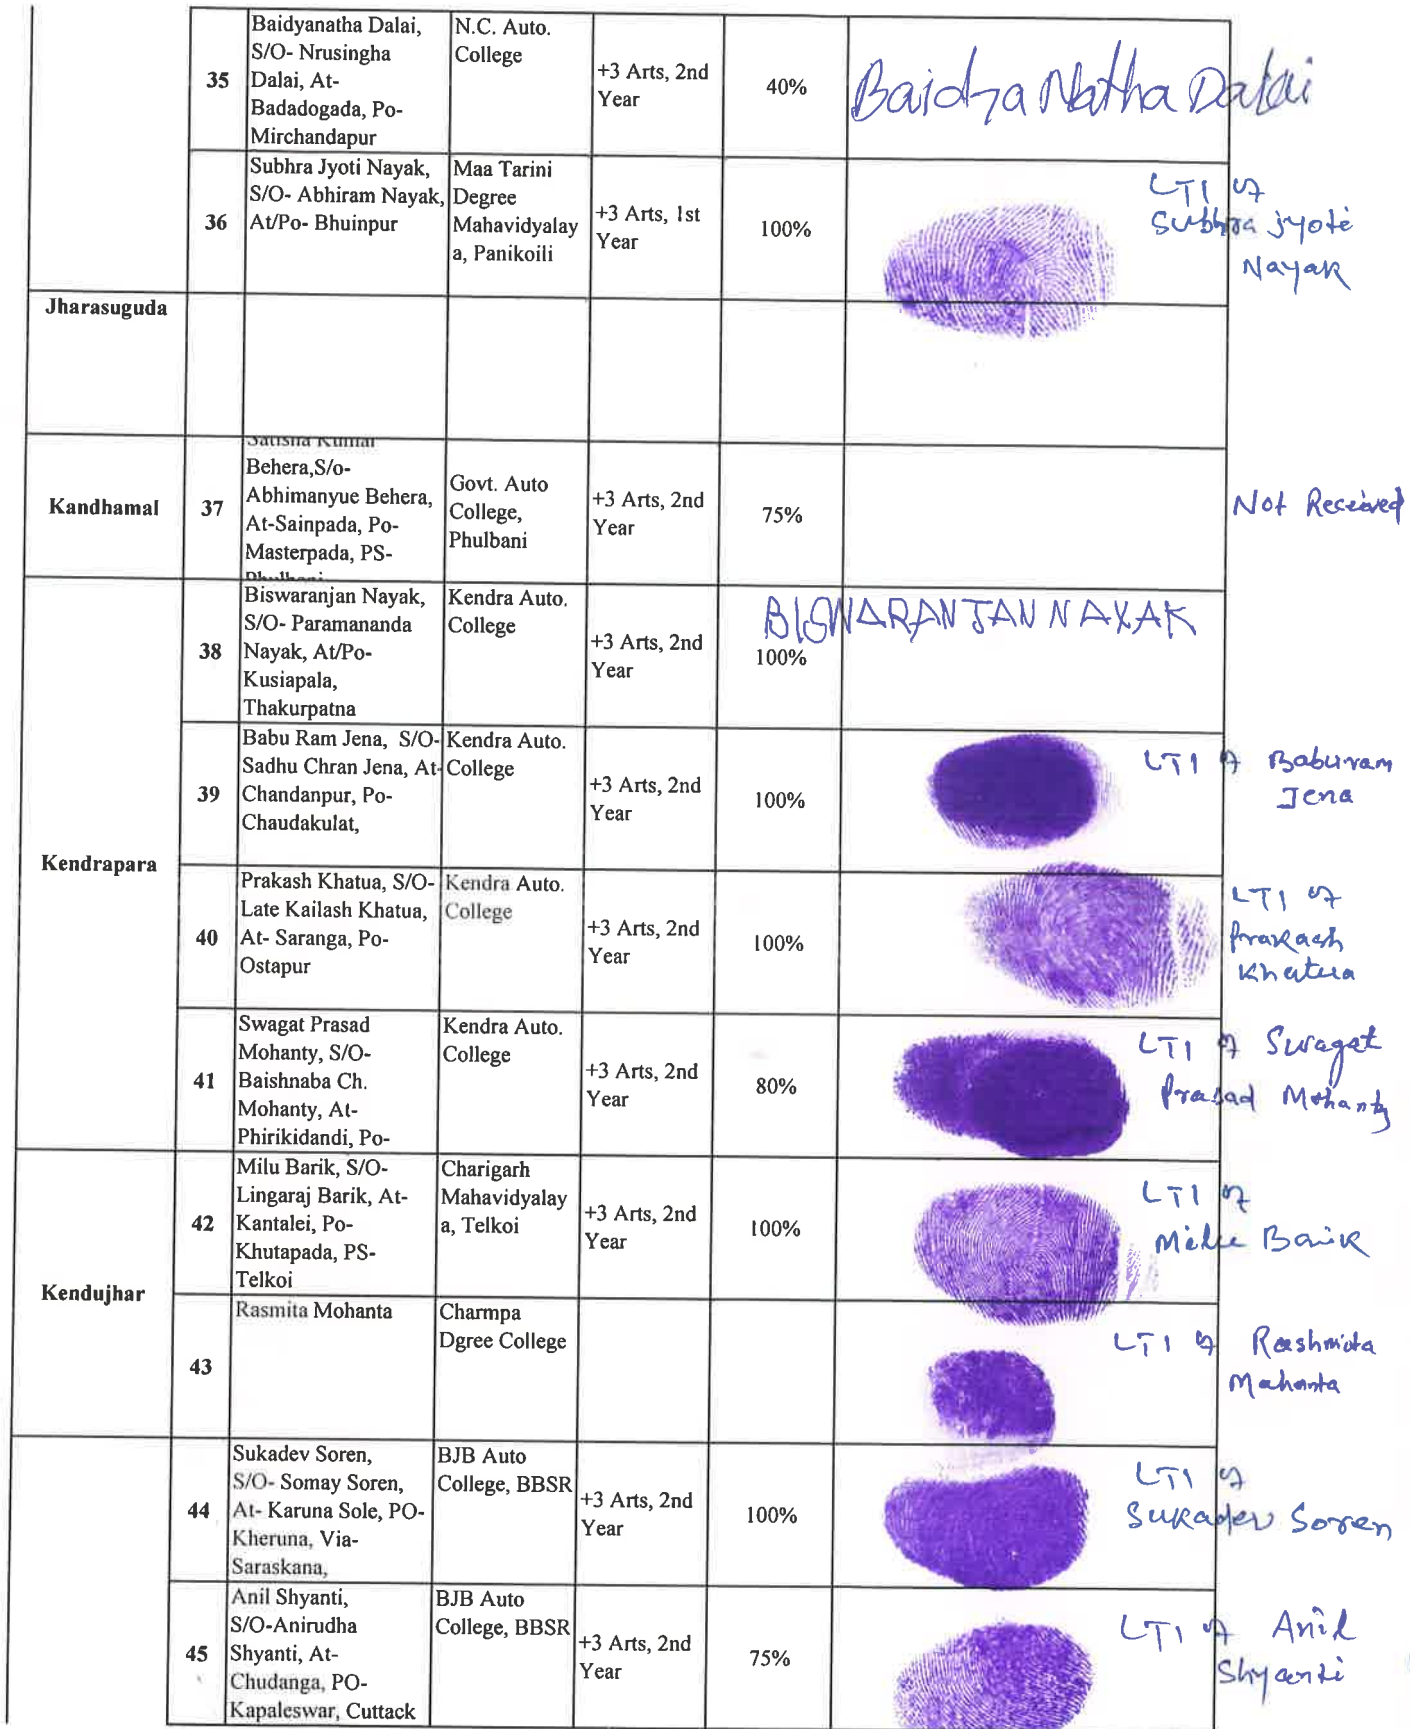 35
Baidyanatha Dalai,
S/O- Nrusingha
Dalai, At-
Badadogada, Po-
Mirchandapur
N.C. Auto.
College
+3 Arts, 2nd
Year
40%
Baidya Natha Dalai
36
Subhra Jyoti Nayak,
S/O- Abhiram Nayak,
At/Po- Bhuinpur
Maa Tarini
Degree
Mahavidyalay
a, Panikoili
+3 Arts, 1st
Year
100%
LTI of
Subhra jyoti
Nayak
Jharasuguda
Kandhamal
37
Satisha Kumar
Behera,S/o-
Abhimanyue Behera,
At-Sainpada, Po-
Masterpada, PS-
Phulbani
Govt. Auto
College,
Phulbani
+3 Arts, 2nd
Year
75%
Not Received
Kendrapara
38
Biswaranjan Nayak,
S/O- Paramananda
Nayak, At/Po-
Kusiapala,
Thakurpatna
Kendra Auto.
College
+3 Arts, 2nd
Year
100%
BISWARANJAN NAYAK
39
Babu Ram Jena, S/O-
Sadhu Chran Jena, At-
Chandanpur, Po-
Chaudakulat,
Kendra Auto.
College
+3 Arts, 2nd
Year
100%
LTI of Baburam
Jena
40
Prakash Khatua, S/O-
Late Kailash Khatua,
At- Saranga, Po-
Ostapur
Kendra Auto.
College
+3 Arts, 2nd
Year
100%
LTI of
Prakash
Khatua
41
Swagat Prasad
Mohanty, S/O-
Baishnaba Ch.
Mohanty, At-
Phirikidandi, Po-
Kendra Auto.
College
+3 Arts, 2nd
Year
80%
LTI of Swagat
Prasad Mohanty
Kendujhar
42
Milu Barik, S/O-
Lingaraj Barik, At-
Kantalei, Po-
Khutapada, PS-
Telkoi
Charigarh
Mahavidyalay
a, Telkoi
+3 Arts, 2nd
Year
100%
LTI of
Milu Barik
43
Rasmita Mohanta
Charmpa
Dgree College
LTI of Rashmita
Mahanta
44
Sukadev Soren,
S/O- Somay Soren,
At- Karuna Sole, PO-
Kheruna, Via-
Saraskana,
BJB Auto
College, BBSR
+3 Arts, 2nd
Year
100%
LTI of
Sukadev Soren
45
Anil Shyanti,
S/O-Anirudha
Shyanti, At-
Chudanga, PO-
Kapaleswar, Cuttack
BJB Auto
College, BBSR
+3 Arts, 2nd
Year
75%
LTI of Anil
Shyanti